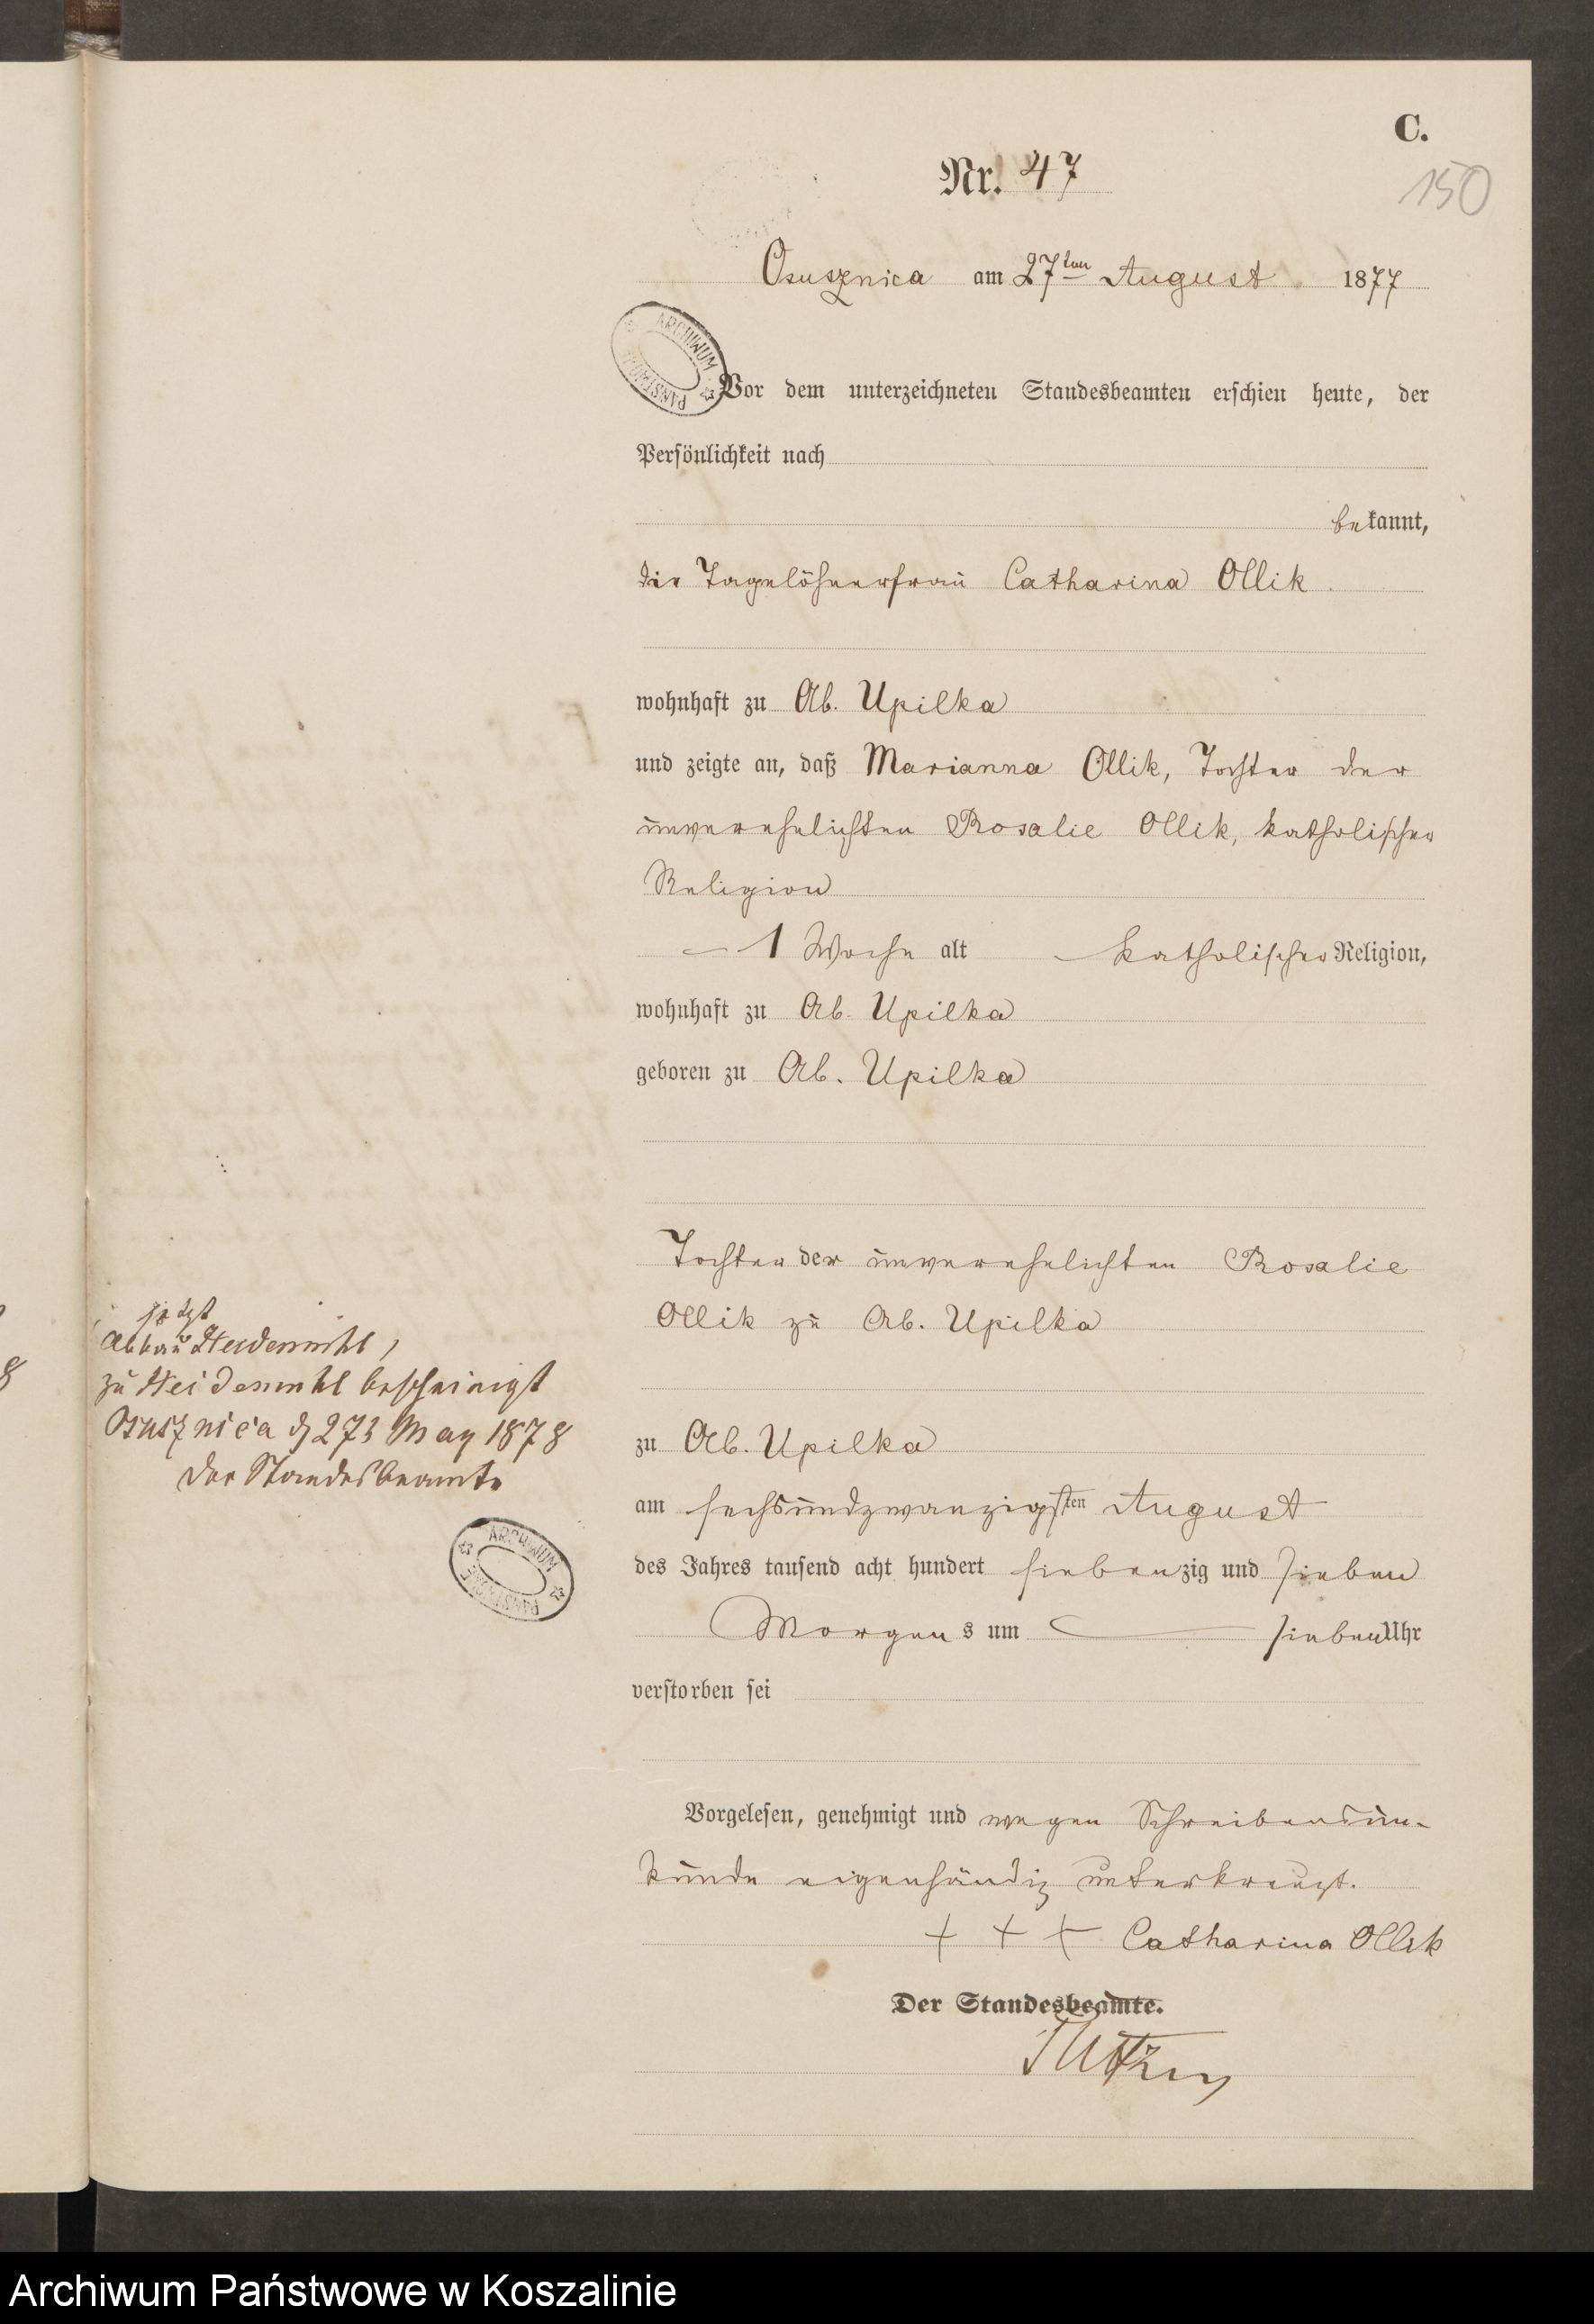 C.
Nr. 47
150
Osusznica am 27ten August 1877
ARCHIWUM PAŃSTWOWE
Vor dem unterzeichneten Standesbeamten erschien heute, der
Persönlichkeit nach
bekannt,
die Tagelöhnerfrau Catharina Ollik
wohnhaft zu Ab. Upilka
und zeigte an, daß Marianna Ollik, Tochter der
unverehelichten Rosalie Ollik, katholischer
Religion
1 Woche alt katholischer Religion,
wohnhaft zu Ab. Upilka
geboren zu Ab. Upilka
Tochter der unverehelichten Rosalie
Ollik zu Ab. Upilka
zu Ab. Upilka
am sechsundzwanzigsten August
des Jahres tausend acht hundert siebenzig und sieben
Morgens um sieben Uhr
verstorben sei
Vorgelesen, genehmigt und wegen Schreibensun-
kunde eigenhändig unterkreuzt.
+ + + Catharina Ollik
Der Standesbeamte.
jetzt
Abbau Heidemühl,
zu Heidemühl bescheinigt
Osusznica d 27t May 1878
Der Standesbeamte
ARCHIWUM PAŃSTWOWE
8
Archiwum Państwowe w Koszalinie